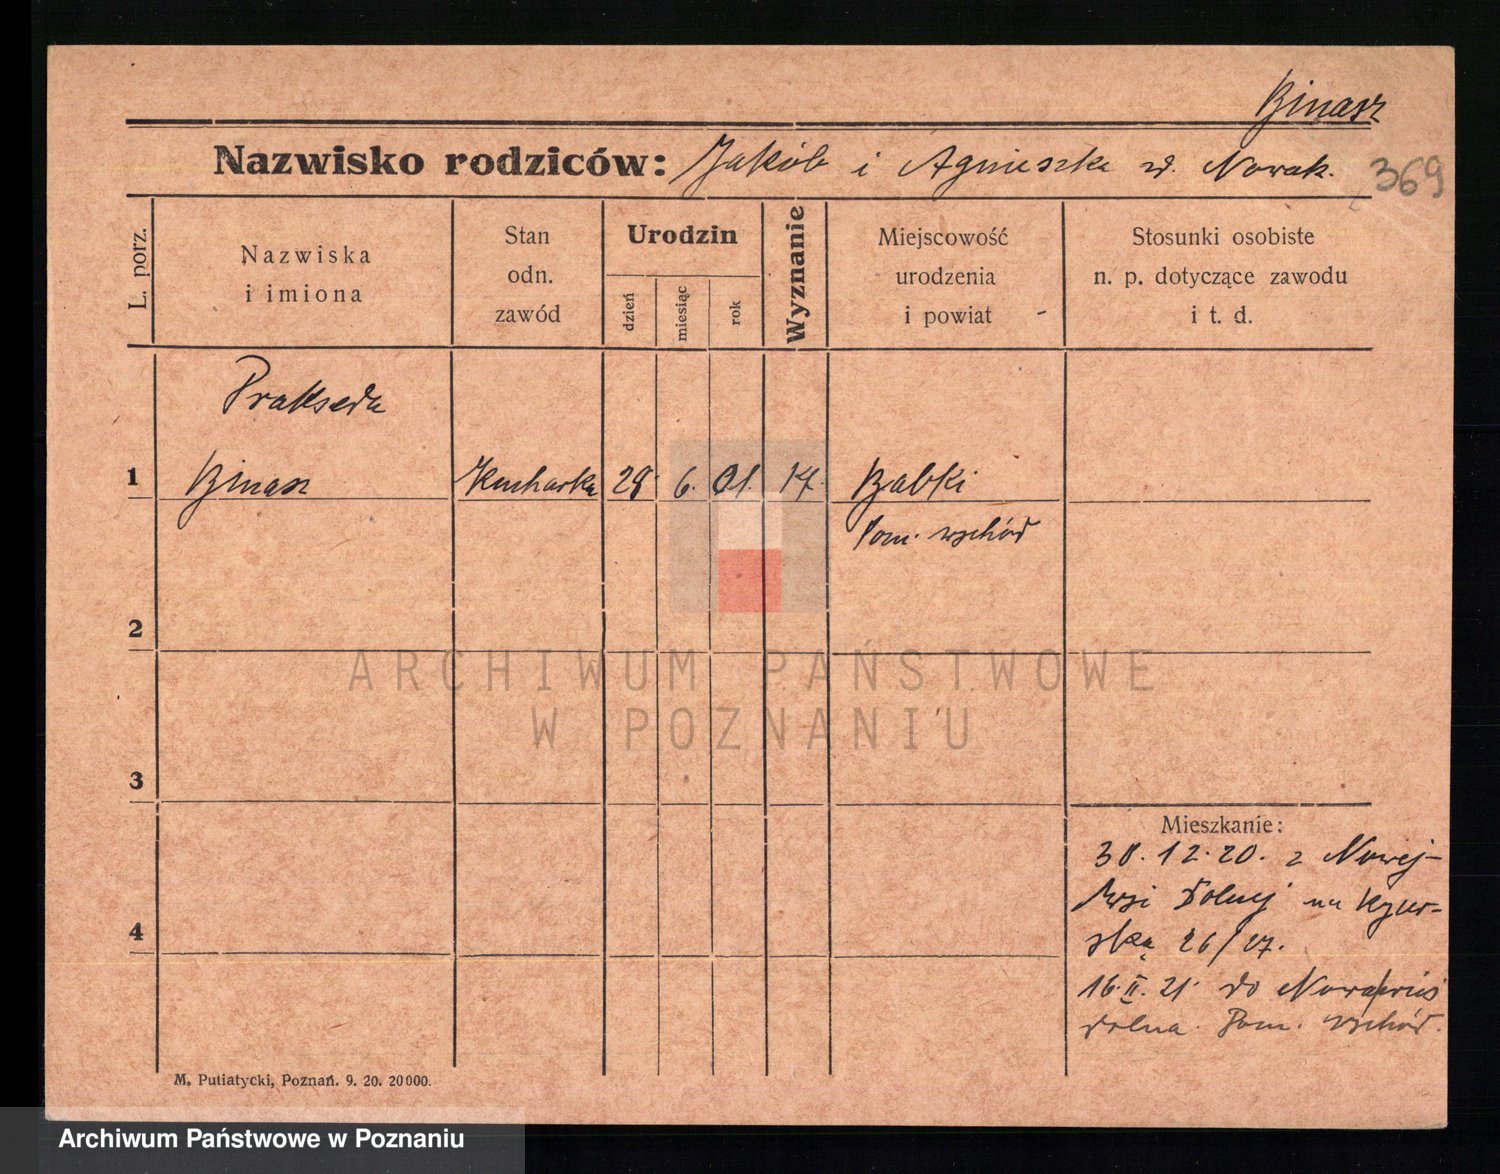 Binasz
Nazwisko rodziców: Jakób i Agnieszka z d. Nowak.
369
L. porz.
Nazwiska
i imiona
Stan
odn.
zawód
Urodzin
dzień
miesiąc
rok
Wyznanie
Miejscowość
urodzenia
i powiat
Stosunki osobiste
n. p. dotyczące zawodu
i t. d.
Prakseda
1 Binasz Kucharka 28. 6. 01. Babki
Pozn. wschód
2
3
4
Mieszkanie:
30.12.20. z Nowej-
Wsi Dolnej na
26/27.
16.II.21. do Nowawieś
dolna. Pozn. wschód.
M. Putiatycki, Poznań. 9. 20. 20000.
ARCHIWUM PAŃSTWOWE
W POZNANIU
Archiwum Państwowe w Poznaniu